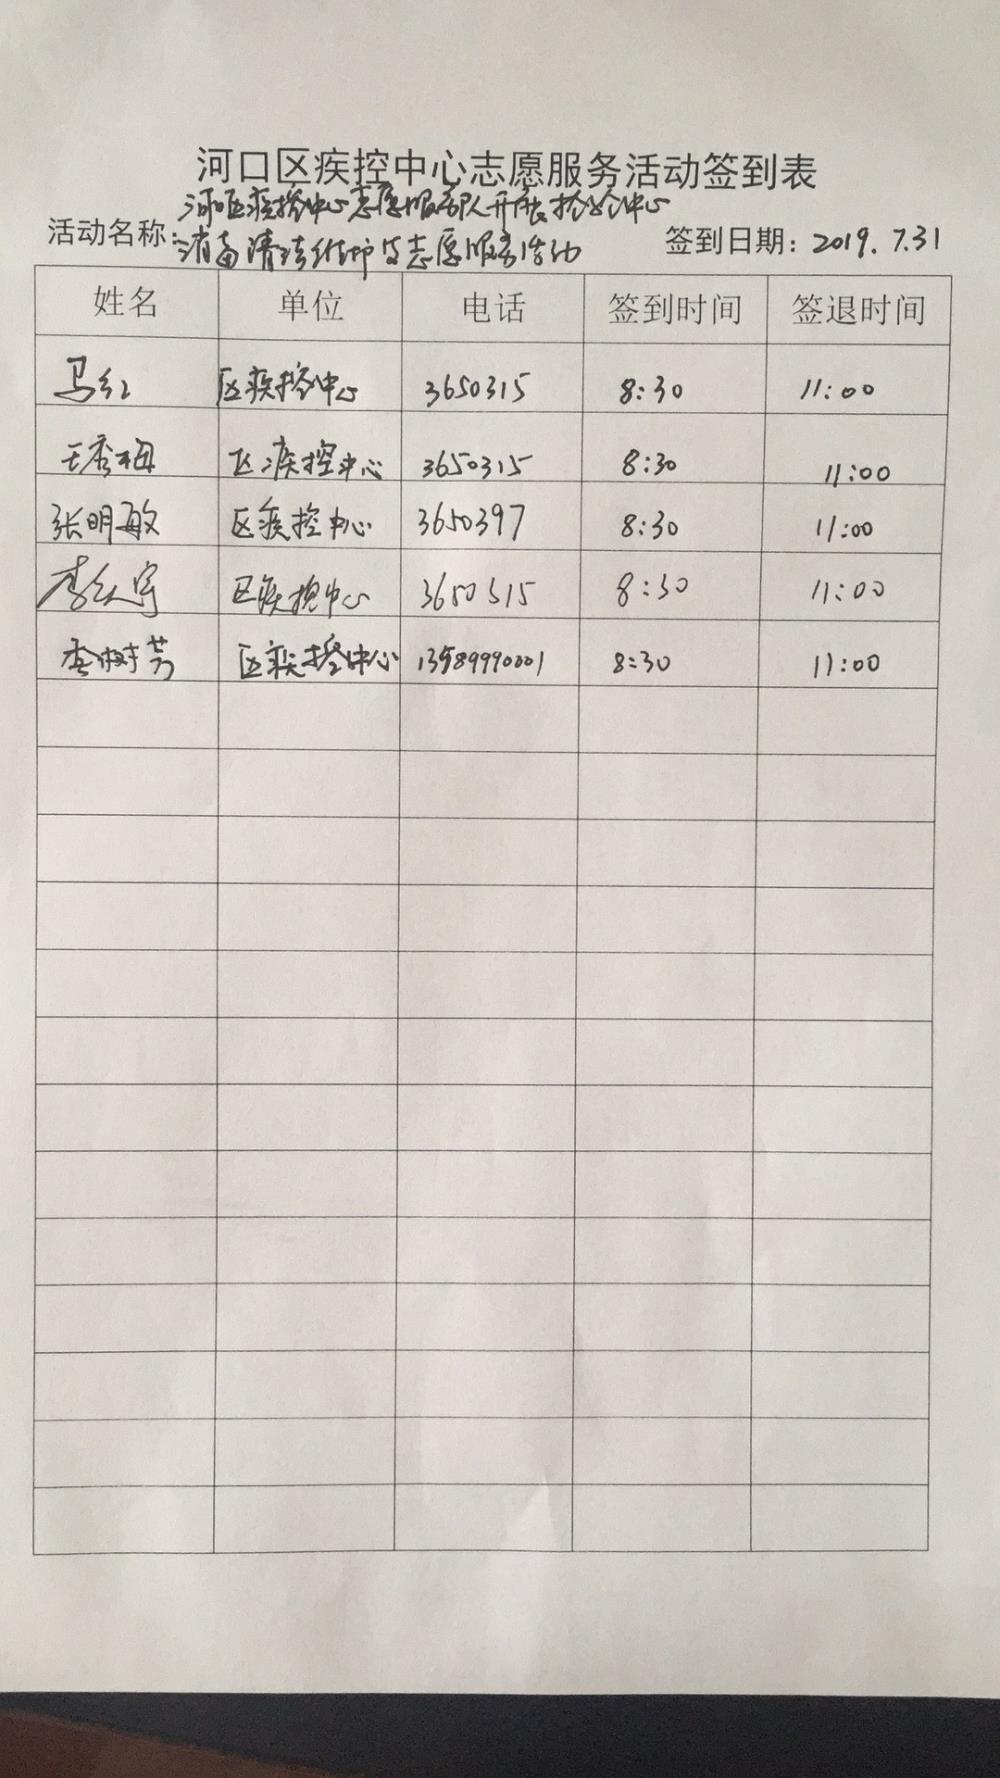 河口区疾控中心志愿服务活动签到表
活动名称: 河口区疾控中心志愿服务队开展 中心
消毒清洁维护 志愿服务活动
签到日期: 2019.7.31
姓名 单位 电话 签到时间 签退时间
马红 区疾控中心 3650315 8:30 11:00
王秀梅 区疾控中心 3650315 8:30 11:00
张明敏 区疾控中心 3650397 8:30 11:00
李 宇 区疾控中心 3650315 8:30 11:00
李树芳 区疾控中心 13589990001 8:30 11:00